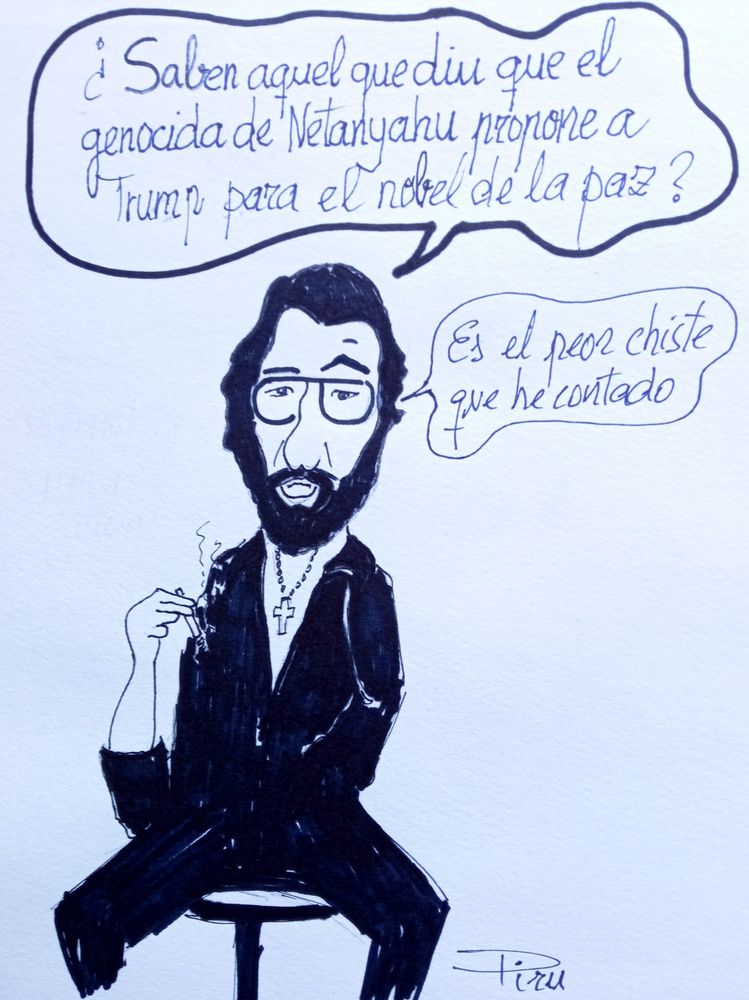 ¿Saben aquel que diu que el
genocida de Netanyahu propone a
Trump para el nobel de la paz?
Es el peor chiste
que he contado
Piru